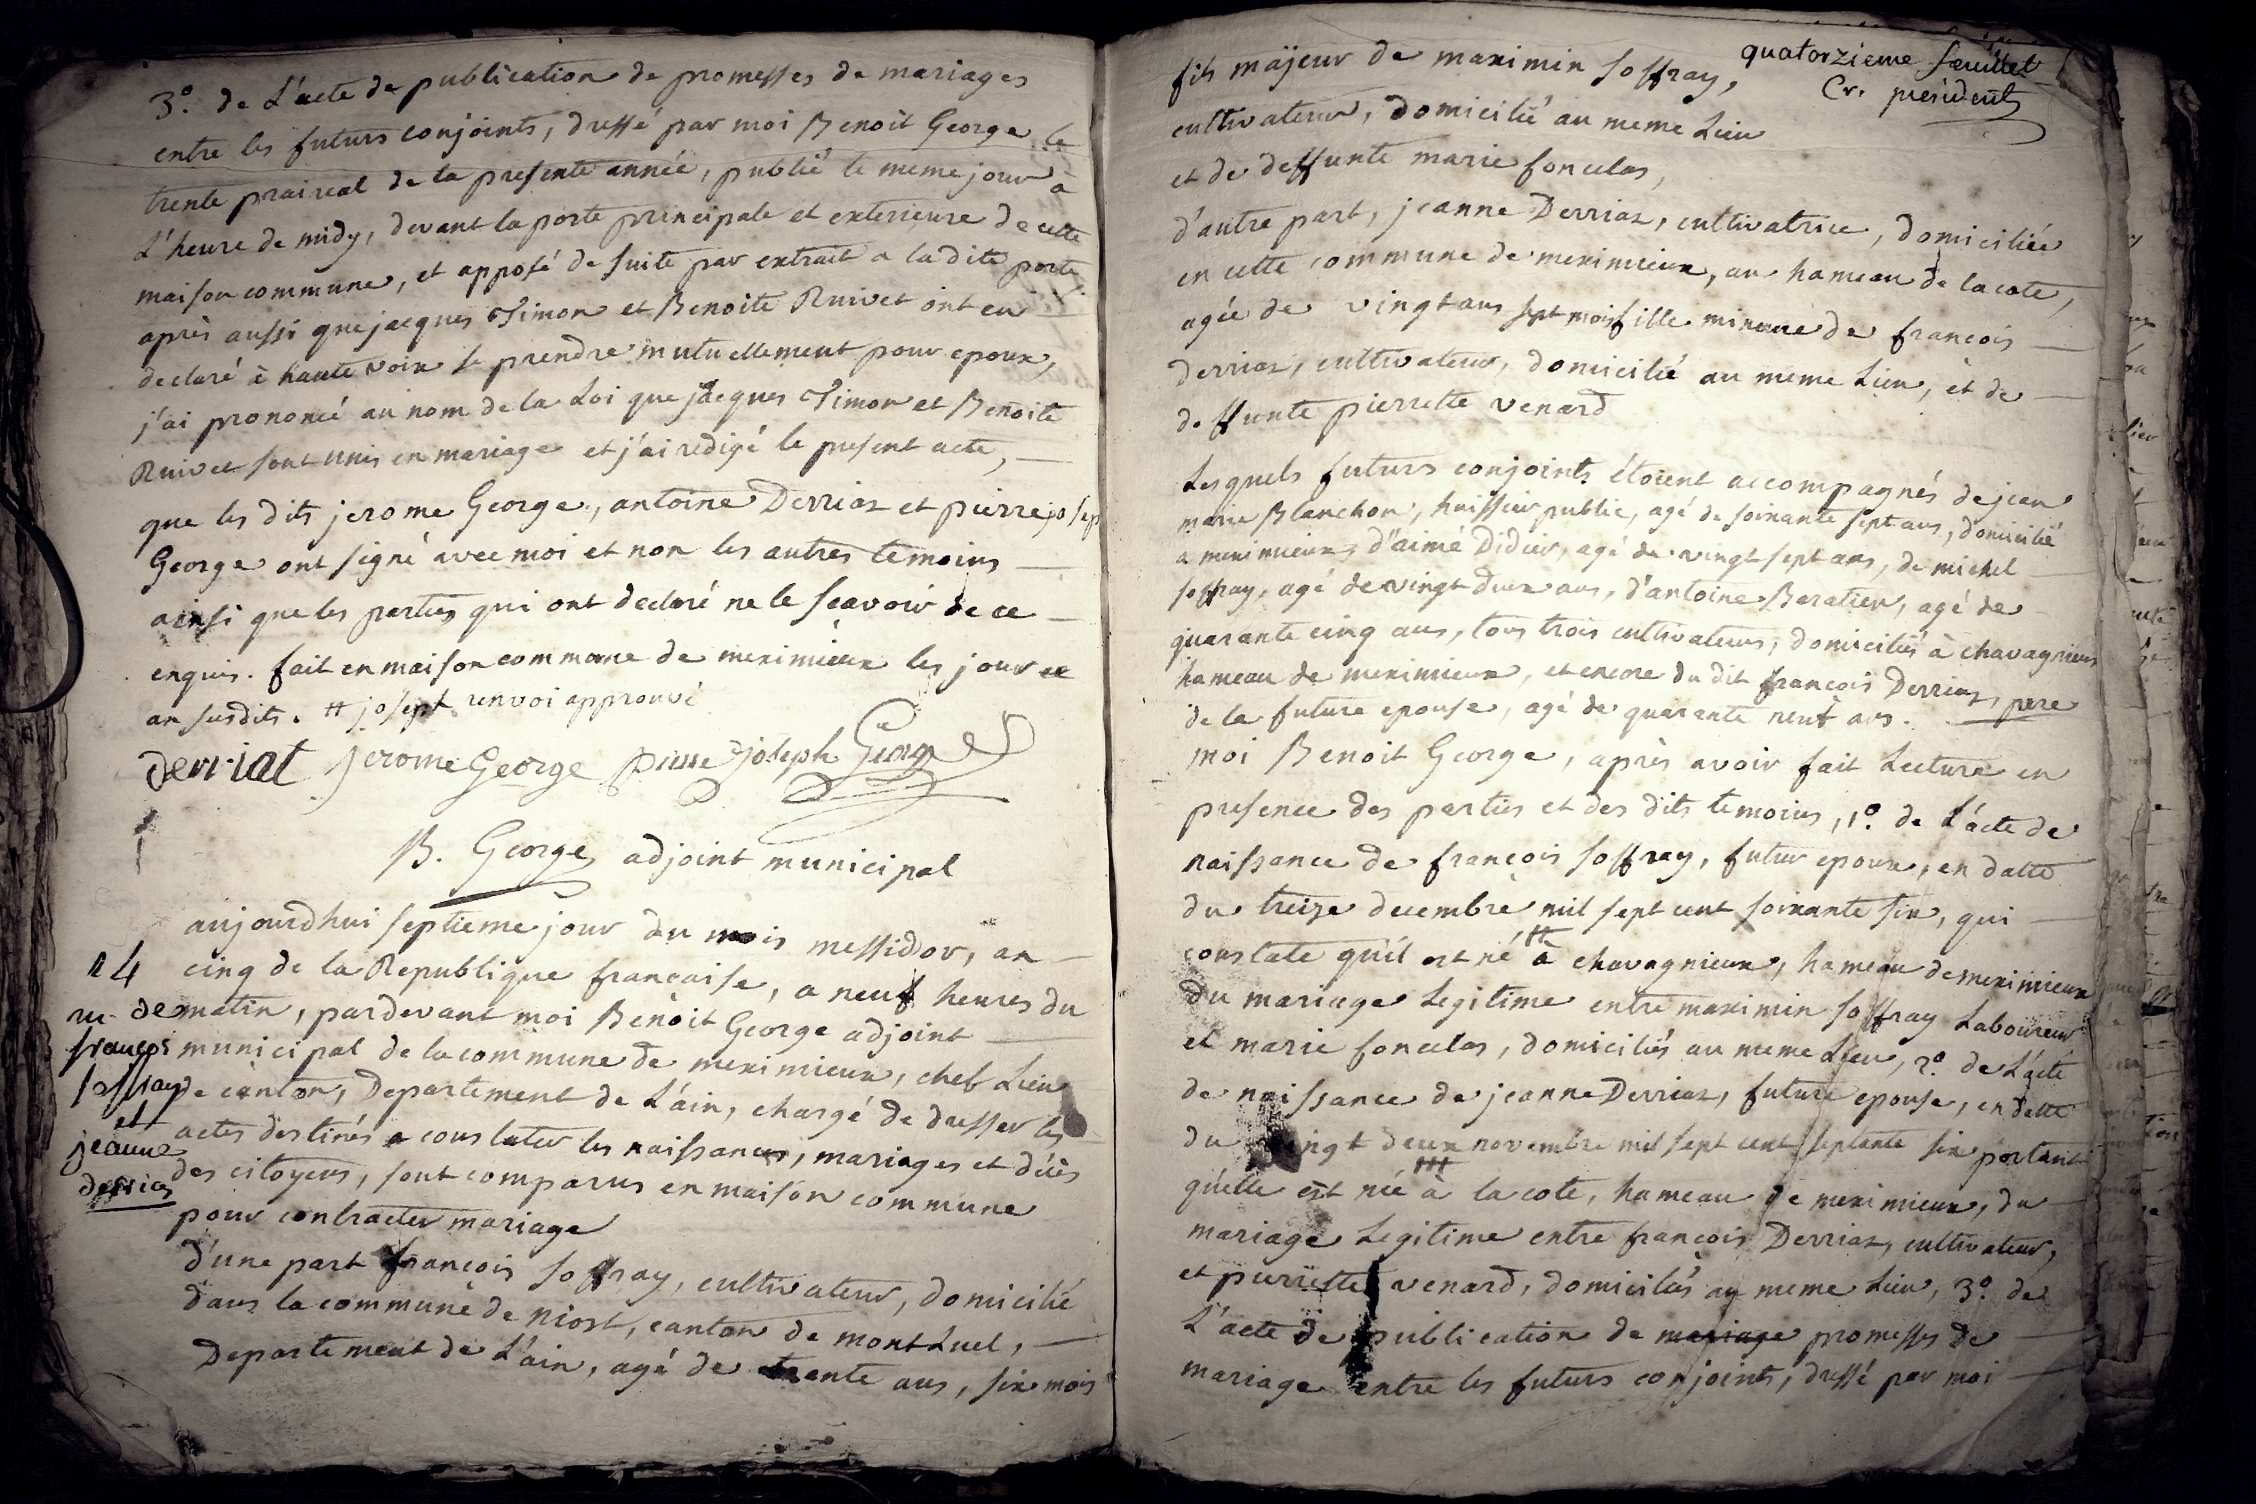 3.° de L'acte de publication de promesses de mariages
entre les futurs conjoints, dressé par moi Benoit George le
trente praireal de la presente année, publié le meme jour à
L'heure de midy, devant la porte principale et exterieure de cette
maison commune, et apposé de suite par extrait a la dite porte
après aussi que jacques Simon et Benoite Ruivet ont eu
declaré à haute voix se prendre mutuellement pour epoux,
j'ai prononcé au nom de la Loi que jacques Simon et Benoite
Ruivet sont unis en mariage et j'ai redigé le present acte,
que les dits jerome George, antoine Derriaz et pierre josep
George ont signé avec moi et non les autres temoins
ainsi que les parties qui ont declaré ne le sçavoir de ce
enquis. fait en maison commune de meximieux les jour et
an susdits. # josept renvoi approuvé
derriat jerome George pierre joseph George
B. George adjoint municipal
14
ma. de
françois
soffray
et
jeanne
derriaz
aujourdhui septieme jour du mois messidor, an
cinq de la Republique française, a neuf heures du
matin, pardevant moi Benoit George adjoint
municipal de la commune de meximieux, chef Lieu
de canton, Departement de L'ain, chargé de dresser les
actes destinés a constater les naissances, mariages et décès
des citoyens, sont comparus en maison commune
pour contracter mariage
d'une part françois soffray, cultivateur, domicilié
dans la commune de niost, canton de montLuel,
Departement de L'ain, agé de trente ans, six mois
quatorzieme feuillet
Cr. president
fils majeur de maximin soffray,
cultivateur, domicilié au meme Lieu
et de deffunte marie fonculas,
d'autre part, jeanne Derriaz, cultivatrice, domiciliée
en cette commune de meximieux, au hameau de la cote,
agée de vingt ans sept mois fille mineure de françois
derriaz, cultivateur, domicilié au meme Lieu, et de
deffunte pierrette venard
Lesquels futurs conjoints étoient accompagnés de jean
marie Blanchon, huissier public, agé de soixante sept ans, domicilié
a meximieux, d'aimé Didier, agé de vingt sept ans, de michel
soffray, agé de vingt deux ans, d'antoine Baratier, agé de
quarante cinq ans, tous trois cultivateurs, domiciliés à chavagnieux
hameau de meximieux, et encore du dit françois Derriaz, pere
de la future epouse, agé de quarante neuf ans.
moi Benoit George, après avoir fait Lecture en
presence des parties et des dits temoins, 1.° de L'acte de
naissance de françois soffray, futur epoux, en datte
du treize decembre mil sept cent soixante six, qui
constate qu'il est né # à chavagnieux, hameau de meximieux
du mariage Legitime entre maximin soffray Laboureur
et marie fonculas, domiciliés au meme Lieu, 2.° de L'acte
de naissance de jeanne Derriaz, future epouse, en datte
du vingt deux novembre mil sept cent septante six portant
qu'elle est née à la cote, hameau de meximieux, du
mariage Legitime entre françois Derriaz, cultivateur,
et pierrette venard, domiciliés au meme Lieu, 3.° de
L'acte de publication de mariage promesses de
mariage entre les futurs conjoints, dressé par moi